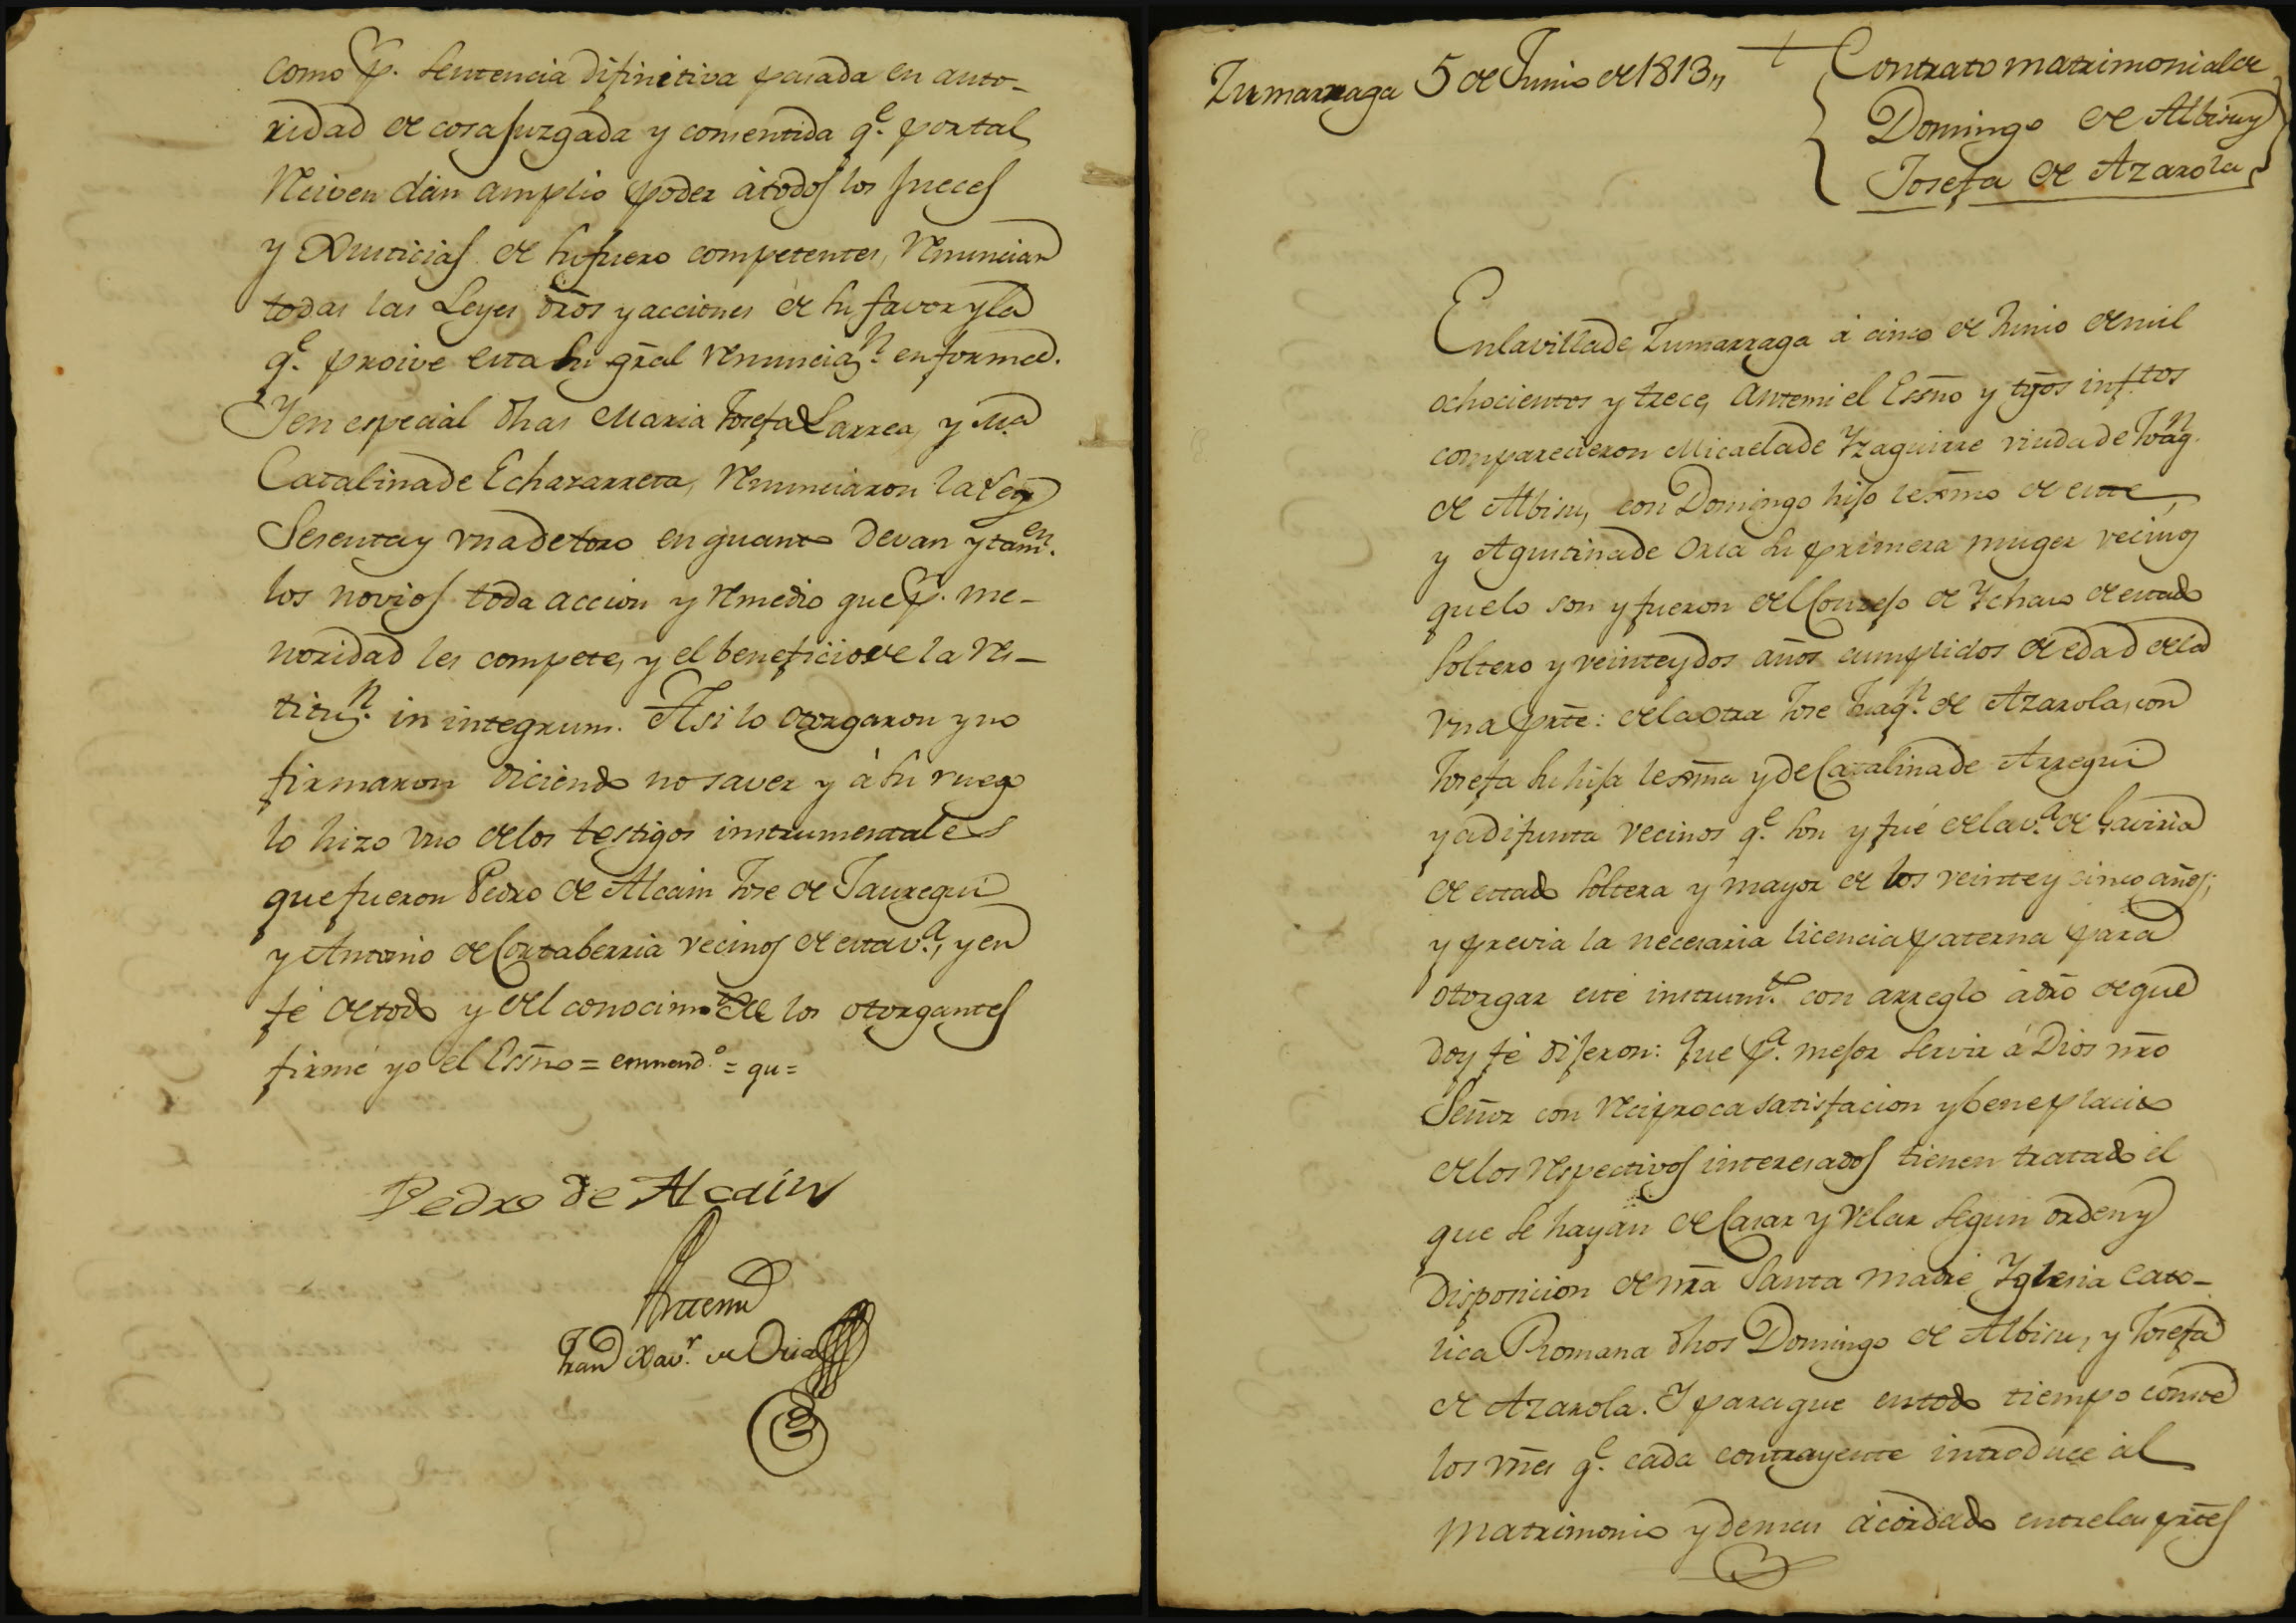 como p.r sentencia difinitiva pasada en auto-
ridad de cosa Juzgada y consentida q.e por tal
reciven dan amplio poder à todos los Jueces
y Xusticias de su fuero competentes, renuncian
todas las Leyes dros y acciones de su favor y la
q.e proive esta su gral renunciaz.n en forma.
Y en especial dhas Maria Josefa Larrea, y M.a
Catalina de Echazarreta, renunciaron la Ley
Sesenta y una de toro en quanto devan y tam.en
los novios toda accion y remedio que p.r me-
noridad les compete, y el beneficio de la res-
tituz.n in integrum. Asi lo otorgaron y no
firmaron diciendo no saver y à su ruego
lo hizo uno de los testigos instrumentales
que fueron Pedro de Alcain Jose de Jauregui
y Antonio de Cortaberria vecinos de esta v.a, y en
fé de todo y del conocim.to de los otorgantes
firmé yo el Essno = enmend.o = qu =
Pedro de Alcaín
Antemi
Fran.co Xav.r de Oria
Zumarraga 5 de Junio de 1813,,
Contrato matrimonial de
Domingo de Albisu y
Josefa de Azarola
En la villa de Zumarraga à cinco de Junio de mil
ochocientos y trece, ante mi el Essno y tgos inf.tos
comparecieron Micaela de Yzaguirre viuda de Juaq.n
de Albisu, con Domingo hijo lexmo de este,
y Agustina de Oria su primera muger vecinos
que lo son y fueron del Consejo de Ychaso de estado
soltero y veinte y dos años cumplidos de edad de la
una prte: de la otra Jose Juaq.n de Azarola, con
Josefa su hija lexma y de Catalina de Arregui
ya difunta vecinos q.e son y fué de la v.a de Gaviria
de estado soltera y mayor de los veinte y cinco años;
y previa la necesaria licencia paterna para
otorgar este instrum.to con arreglo à dro de que
doy fé dijeron: Que p.a mejor servir á Dios nro
Señor con reciproca satisfacion y beneplacito
de los respectivos interesados tienen tratado el
que se hayan de Casar y velar segun orden y
disposicion de nra Santa Madre Yglesia Cato-
lica Romana dhos Domingo de Albisu, y Josefa
de Azarola. Y para que en todo tiempo conste
los vnes q.e cada contrayente introduce al
matrimonio y demas acordado entre las prtes